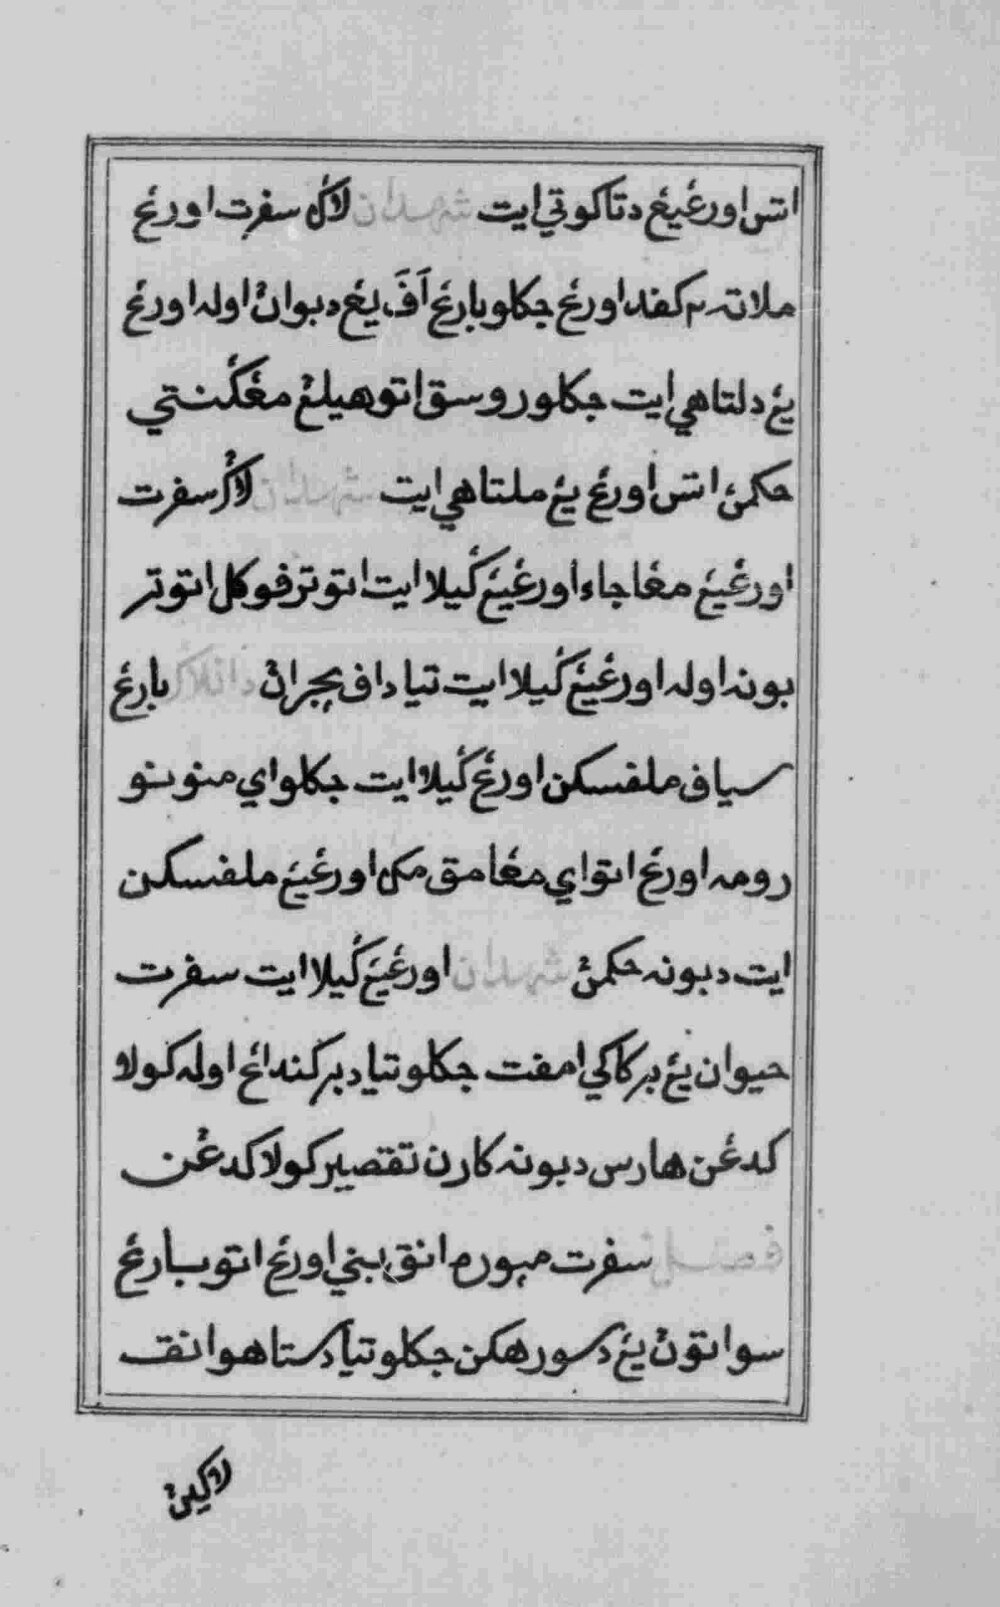 اتس اورڠيغ دتاكوتي ايت شهدان لاكر سفرت اورڠ
ملاته كفد اورڠ جكلو بارڠ أفَ يڠ دبوان اوله اورڠ
يڠ دلتاهي ايت جكلو روسق اتو هيلڠ مڠݢنتي
حكمن اتس اورڠ يڠ ملتاهي ايت شهدان لاكر سفرت
اورڠيڠ مڠاجاء اورڠيڠ ݢيلا ايت اتو ترفوكل اتو تر
بونه اوله اورڠيڠ ݢيلا ايت تياداف بچران دانلاكر بارڠ
سياف ملفسكن اورڠ ݢيلا ايت جكلو اي منونو
رومه اورڠ اتو اي مڠامق مك اورڠيڠ ملفسكن
ايت دبونه حكمن شهدان اورڠيڠ ݢيلا ايت سفرت
حيوان يڠ بركاكي امفت جكلو تياد بركنداڠ اوله كولا
كدڠن هارس دبونه كارن تقصير كولا كدڠن
فصل سفرت مپوره انق بني اورڠ اتو بارڠ
سواتون يڠ دسورهكن جكلو تياد ستاهو انق
لاكين